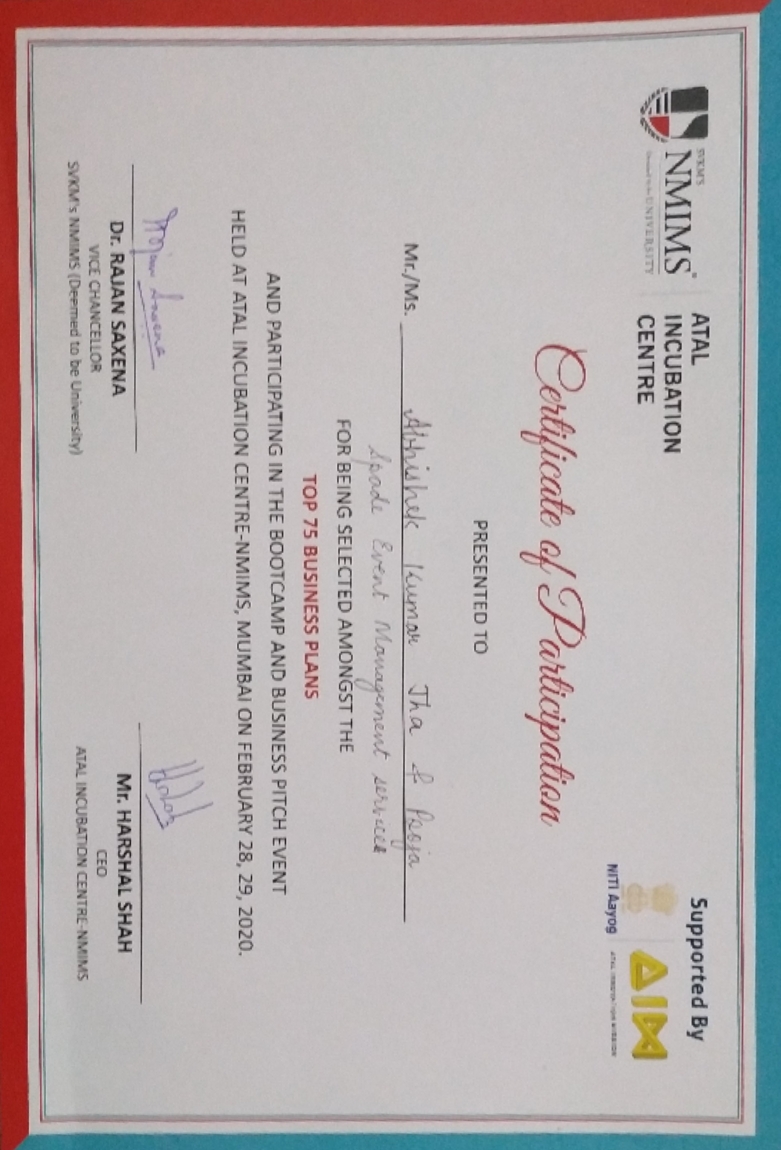 SVKM'S
NMIMS
Deemed to be UNIVERSITY
ATAL
INCUBATION
CENTRE
Supported By
NITI Aayog
AIM
ATAL INNOVATION MISSION
Certificate of Participation
PRESENTED TO
Mr./Ms. Abhishek Kumar Jha & Pooja
Spade Event Management services
FOR BEING SELECTED AMONGST THE
TOP 75 BUSINESS PLANS
AND PARTICIPATING IN THE BOOTCAMP AND BUSINESS PITCH EVENT
HELD AT ATAL INCUBATION CENTRE-NMIMS, MUMBAI ON FEBRUARY 28, 29, 2020.
Rajan Saxena
Dr. RAJAN SAXENA
VICE CHANCELLOR
SVKM's NMIMS (Deemed to be University)
Mr. HARSHAL SHAH
CEO
ATAL INCUBATION CENTRE-NMIMS